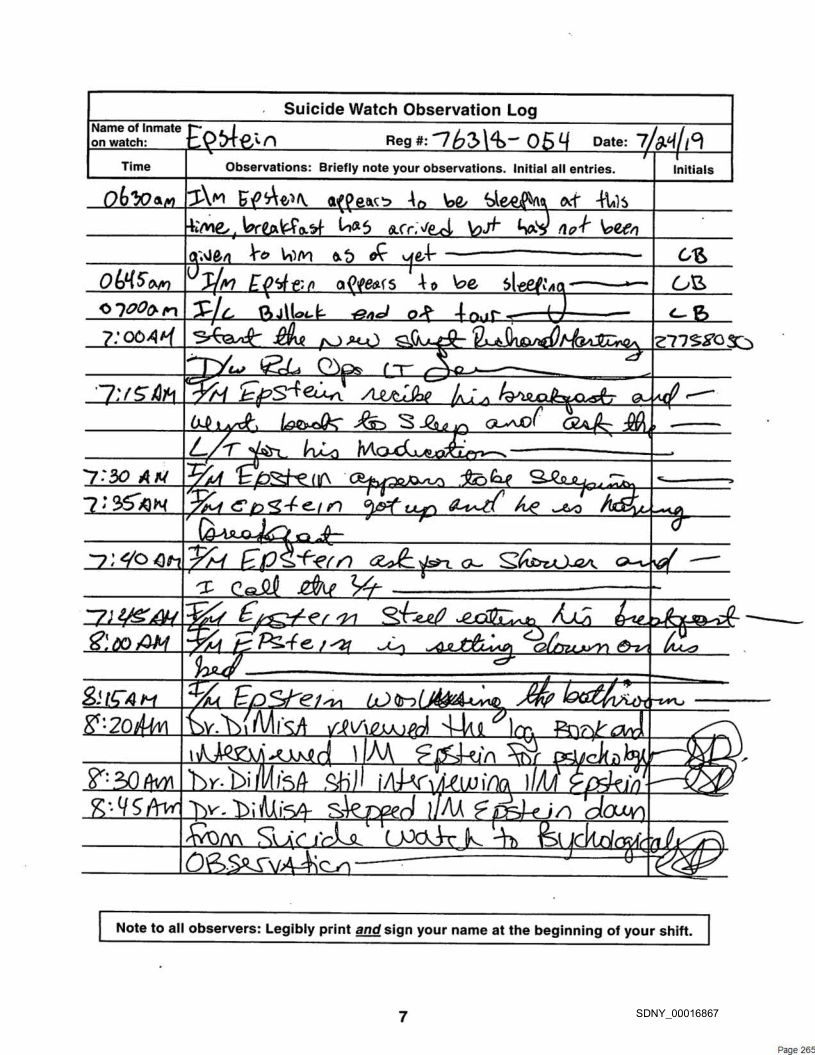 Suicide Watch Observation Log
Name of Inmate on watch: Epstein Reg #: 76318-054 Date: 7/24/19
Time Observations: Briefly note your observations. Initial all entries. Initials
0630am I\m Epstein appears to be sleeping at this
time, breakfast has arrived but has not been
given to him as of yet CB
0645am I/m Epstein appears to be sleeping CB
0700am I/c Bullock end of tour CB
7:00AM Start the New shift Richard Martinez 27758050
D/w Rds Ops LT
7:15AM I/M EPStein recibe his breakfast and
weynt back to Sleep and ask the
L/T for his Maducation
7:30 AM I/M Epstein appears to be Sleeping
7:35AM I/M Epstein got up and he is having
breakfast
7:40 AM I/M EPStein ask for a Shower and
I call the L/t
7:45 AM I/M Epstein Steel eating his breakfast
8:00 AM I/M EPStein is setting down on his
bed
8:15AM I/M EpStein was using the bathroom
8:20Am Dr. DiMisA reviewed the log Book and
interviewed I/M Epstein for psychology
8:30Am Dr. DiMisA Still interviewing I/M Epstein
8:45Am Dr. DiMisA stepped I/M Epstein down
from Suicide Watch to Psychological
OBservAtion
Note to all observers: Legibly print and sign your name at the beginning of your shift.
7
SDNY_00016867
Page 265